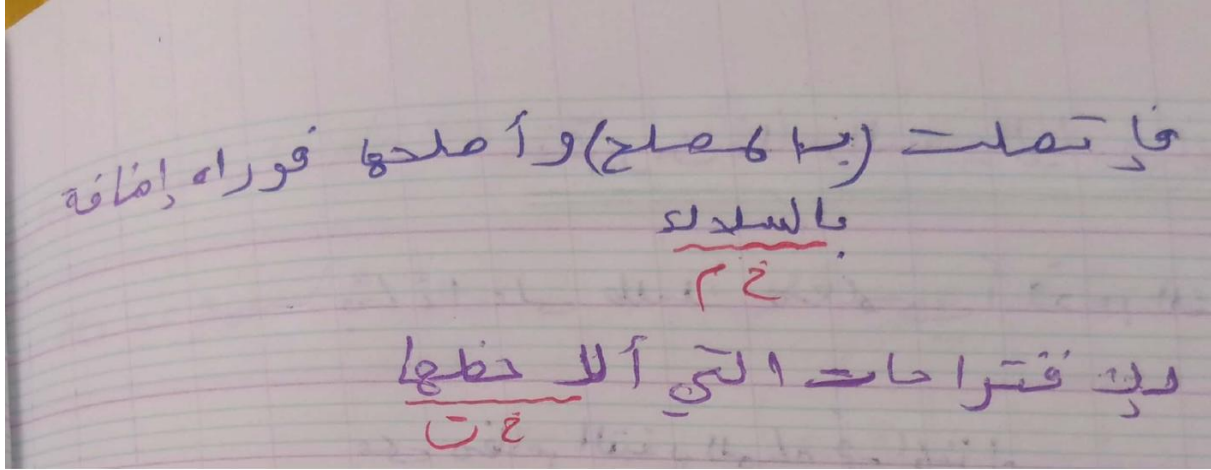 فإتصلت (بالمصلح) وأصلحها فوراء إضافة
بالسلاك
خ م
لإقتراحات التي ألاحظها
خ ت